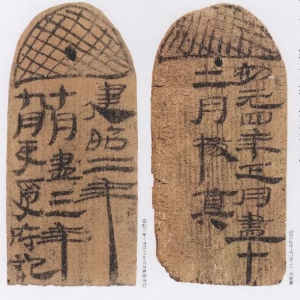 初元四年正月盡十
二月檄算
建昭二年
十月盡三年
九月吏受府記